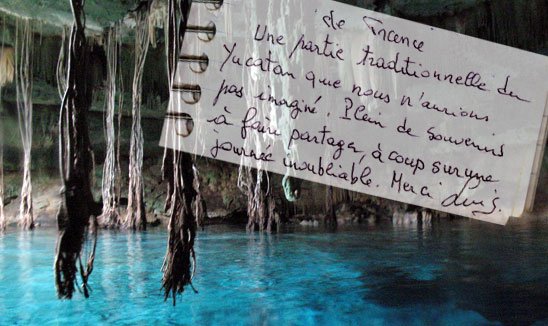 de France
Une partie traditionnelle du
Yucatan que nous n'aurions
pas imaginé. Plein de souvenirs
à faire partager, à coup sur une
journée inoubliable. Merci Luis.